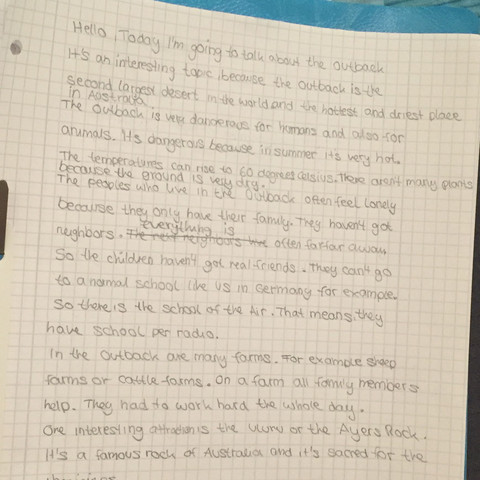 Hello, Today I'm going to talk about the outback
It's an interesting topic, because the outback is the
second largest desert in the world and the hottest and driest place
in Australia.
The Outback is very dangerous for humans and also for
animals. It's dangerous because in summer it's very hot.
The temperatures can rise to 60 degrees celsius. There aren't many plants
because the ground is very dry.
The peoples who live in the Outback often feel lonely
because they only have their family. They haven't got
everything is
neighbors. The next neighbors live often far far away.
So the children haven't got real friends. They can't go
to a normal school like us in Germany for example.
So there is the school of the Air. That means, they
have school per radio.
In the Outback are many farms. For example sheep
farms or cattle farms. On a farm all family members
help. They had to work hard the whole day.
One interesting attraction is the Uluru or the Ayers Rock.
It's a famous rock of Australia and it's sacred for the